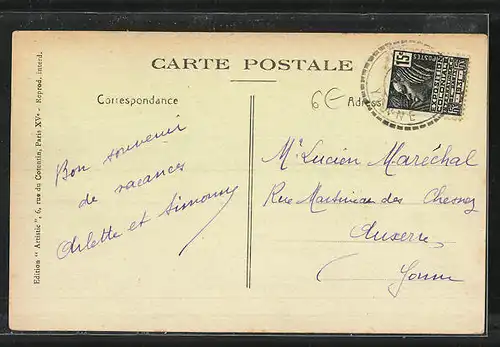 CARTE POSTALE
Correspondance
6€ Adress
POSTES
15c
YONNE
Bon souvenir
de vacances
Arlette et Simonny
Mr Lucien Maréchal
Rue Martineau des Chesnez
Auxerre
Yonne
Edition "Artistic", 6, rue du Cotentin, Paris XVe - Reprod. interd.